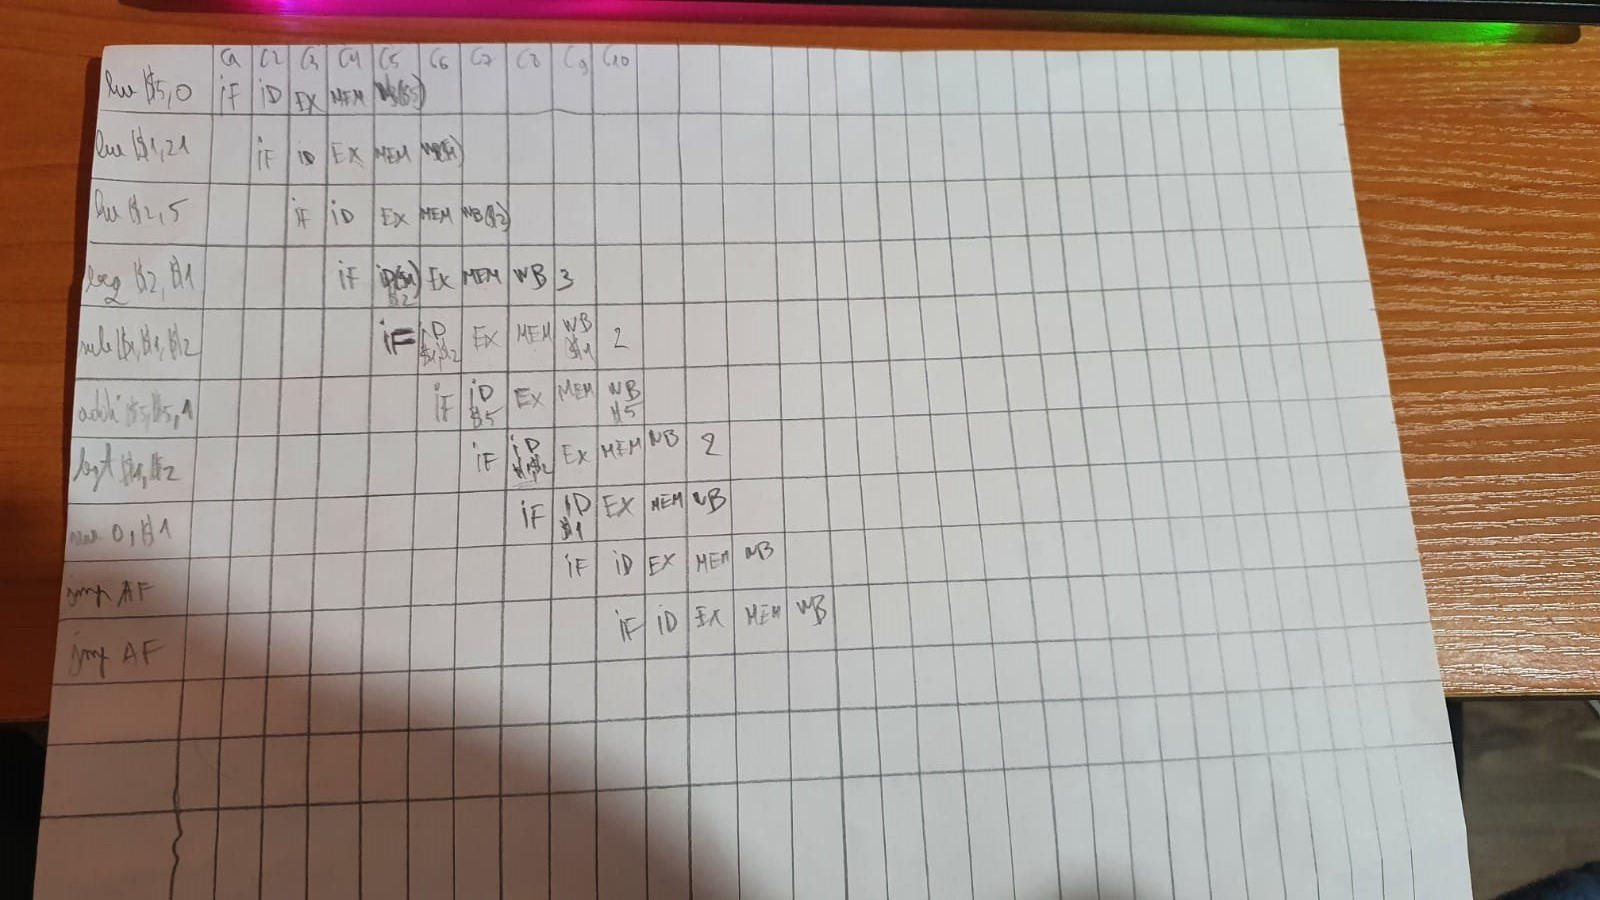 C1 C2 C3 C4 C5 C6 C7 C8 C9 C10
lw $5,0 iF iD EX MEM WB($5)
lw $1,21 iF iD EX MEM WB($1)
lw $2,5 iF iD EX MEM WB($2)
beq $2,$1 iF iD($1 $2) EX MEM WB 3
sub $1,$1,$2 iF iD $1,$2 EX MEM WB $1 2
addi $5,$5,1 iF iD $5 EX MEM WB $5
bgt $1,$2 iF iD $1,$2 EX MEM WB 2
0,$1 iF iD $1 EX MEM WB
jmp AF iF iD EX MEM WB
jmp AF iF iD EX MEM WB